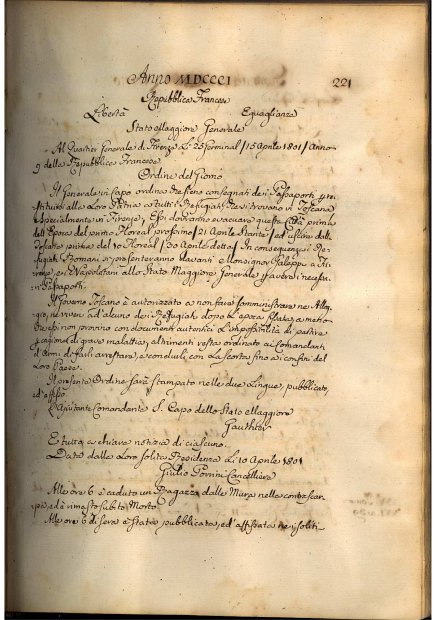 Anno MDCCCI
221
Repubblica Francese
Libertà Eguaglianza
Stato Maggiore Generale
Al Quartier Generale di Firenze Li 25 Germinal /15 Aprile 1801/ Anno
9 della Repubblica Francese
Ordine del Giorno
Il Generale in Capo ordina che sieno consegnati dei Passaporti
alla Loro Patria a tutti i Refugiati che si trovano in Toscana
e specialmente in Firenze, Essi dovranno evacuare questa Città prima
dell'Epoca del primo Floreal prossimo /21 Aprile Stante/ ed uscire dalla
Toscana prima del 10 Floreal /30 Aprile detto/ In conseguenza i Re-
fugiati Romani si presenteranno davanti a Monsignor Caleppi a Fi-
renze, ed i Napoletani allo Stato Maggiore Generale
Passaporti.
Il Governo Toscano è autorizzato a non fare somministrare nè Allog-
gi, nè viveri ad alcuno dei Refugiati dopo l'epoca fissata, a meno
che essi non provino con documenti autentici l'impossibilità di partire
a cagione di grave malattia, altrimenti resta ordinato ai Comandanti
d'Armi di farli arrestare, e condurli con La scorta fino ai confini del
Loro Paese.
Il presente Ordine sarà stampato nelle due Lingue, pubblicato,
ed affisso.
L'Aiutante Comandante S. Capo dello Stato Maggiore
Gauthier
E tutto a chiara notizia di ciascuno.
Data dalla Loro solita Residenza Li 10 Aprile 1801
Giulio Porrini Cancelliere
Alle ore 6 è caduto un Ragazzo dalle Mura nella contrascar-
pa, ed è rimasto subito Morto.
Alle ore 6 di sera è stata pubblicata, ed affissata nei soliti